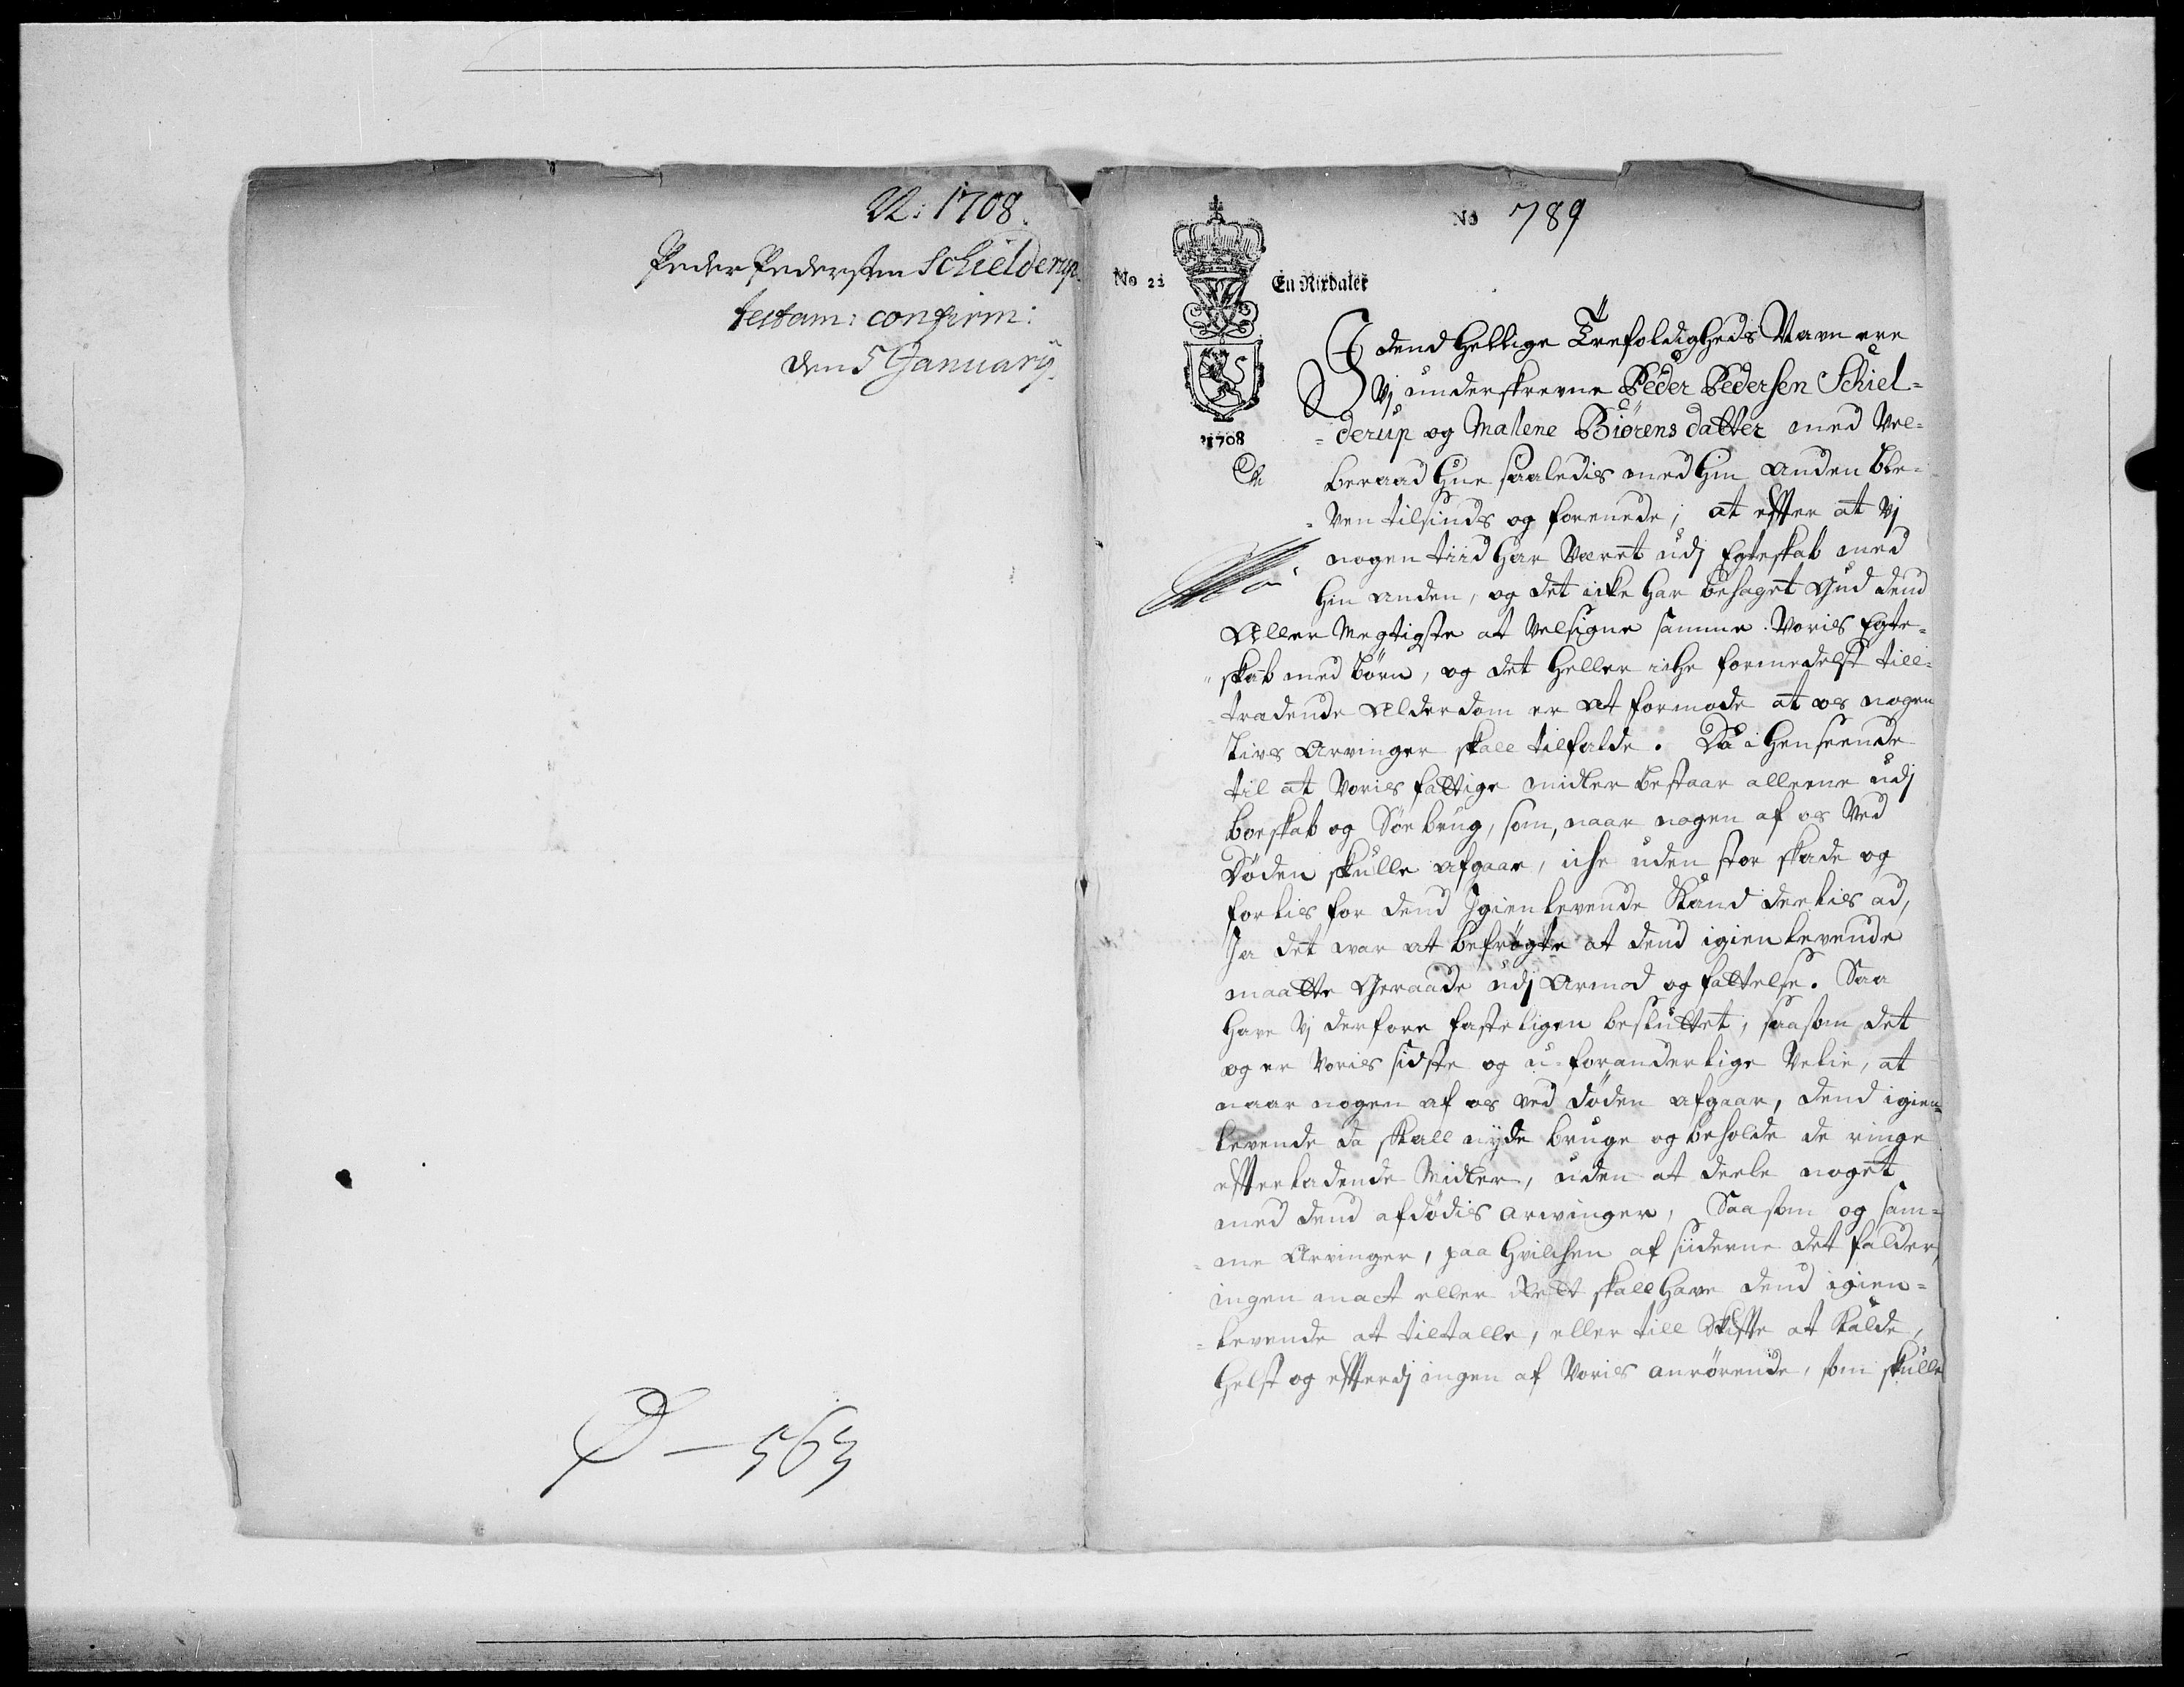 22: 1708.
Peder Pedersen Schielderup.
testam: confirm:
den 5 Januarÿ.
D — 563
No 789
No 21 En Rixdaler
1708
I dend Hellige Trefoldigheds Navn ere
Vj underskrevne Peder Pedersen Schiel-
-derup og Malene Biörens datter med Vel-
beraad Hue saaledis med hin anden ble-
-ven tilsinds og foreenede; at efter at Vj
nogen tiid har Været udj Egteskab med
hin anden, og det icke har behaget Gud dend
Aller Megtigste at Velsigne samme Voris Egte-
skab med börn, og det heller iche formedelst till-
-trædende Alderdom er at formode at os nogen
Livs Arvinger skall tilfalde. Da i henseende
til at Voris fattige midler bestaar alleene udj
boeskab og Söe brug, som, naar nogen af os Ved
Döden skulle afgaae, iche uden stor skade og
forlis for dend Igienlevende Kand deelis ad,
Ja det var at befrögte at dend igienlevende
maatte Geraade udj Armod og fattelse. Saa
have Vj derfore fasteligen besluttet, saasom det
og er Voris sidste og u-foranderlige Velie, at
naar nogen af os ved döden afgaar, dend igien-
levende da skall nyde bruge og beholde de ringe
efterladende Midler, uden at deele noget
med dend afdödis arvinger, Saasom og sam-
-me Arvinger, paa hvilchen af siiderne det falder,
ingen mact eller Rett skall have dend igien-
-levende at tiltalle, eller till Skifte at Kalde,
helst og efterdj ingen af Voris anrörende, som skulle